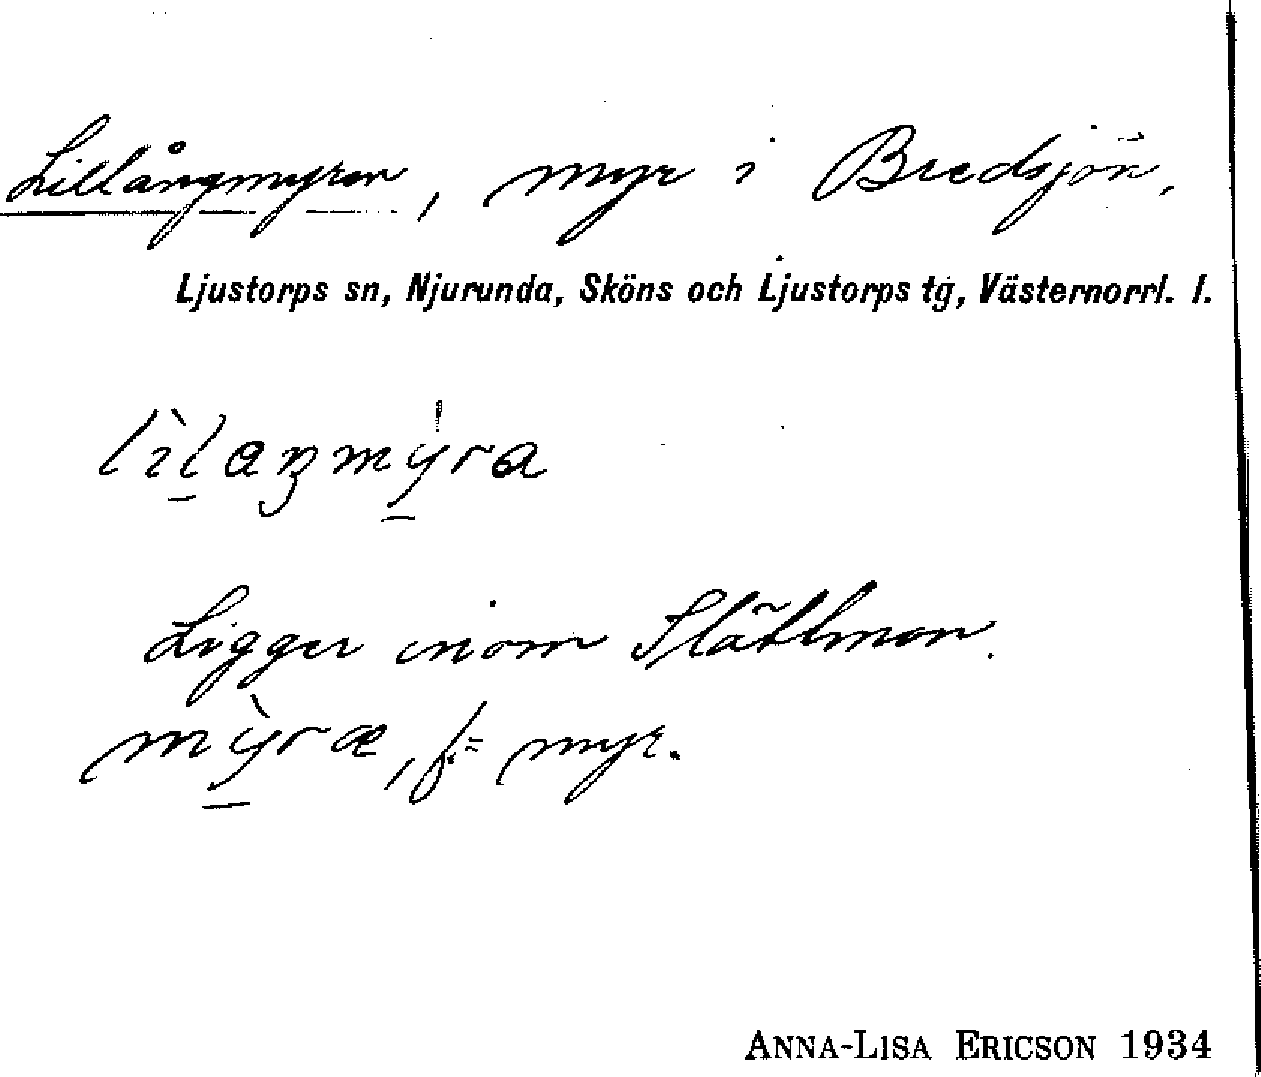 Lillångmyren, myr i Bredsjön,
Ljustorps sn, Njurunda, Sköns och Ljustorps tg, Västernorrl. l.
lìlaŋmýra
Ligger inom Slättmon.
mỳræ, f. = myr.
ANNA-LISA ERICSON 1934